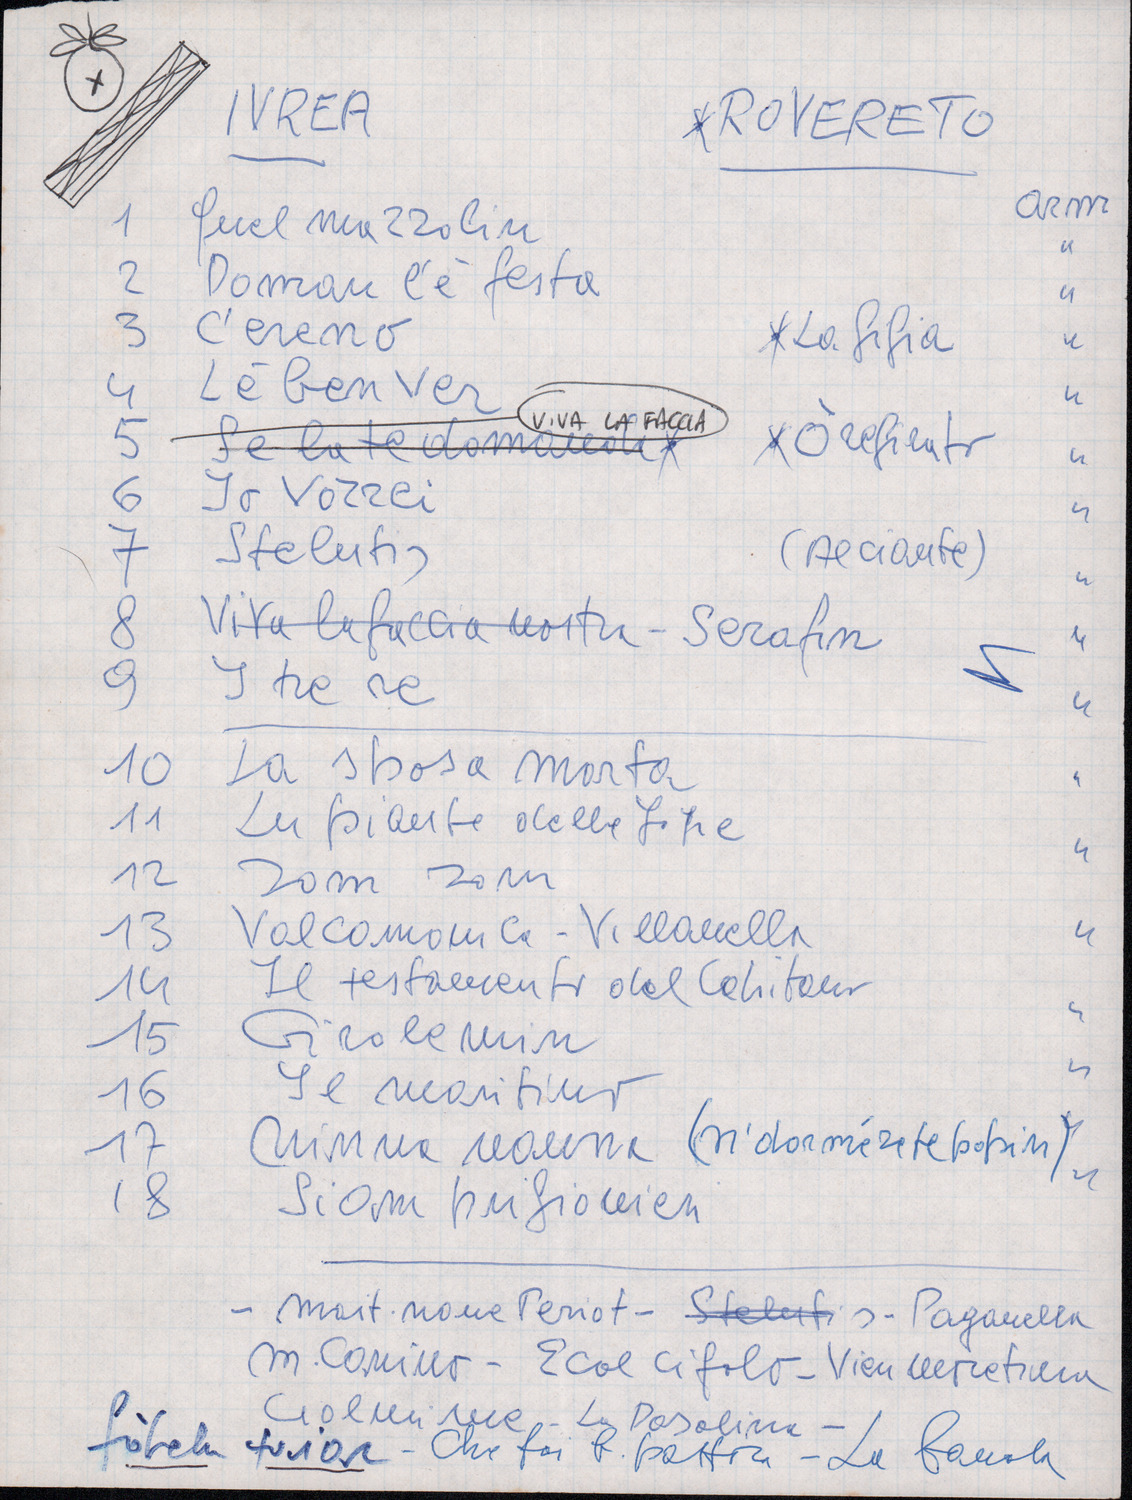 IVREA *ROVERETO
arm
1 Quel mazzolin "
2 Doman l'è festa "
3 C'ereno *La gigia "
4 Lè ben ver "
VIVA LA FACCIA
5 Se la te domanda * * "
6 Io vorrei "
7 Stelutis (Alciante) "
8 Viva la faccia nostra - Serafin "
9 I tre re "
10 La sposa morta "
11 La piante delle "
12 Zom zom
13 Valcamonica - Villanella "
14 Il testamento del Capitano "
15 Girolemin "
16 Il maritino
17 Ninna nanna (n'dormézete popin) "
18 Siam prigionieri
- mait. Periot - Stelutis - Paganella
m. Canino - E col cifolo - Vien moretina
- La Dosolina -
- Che fai b. pastora - La